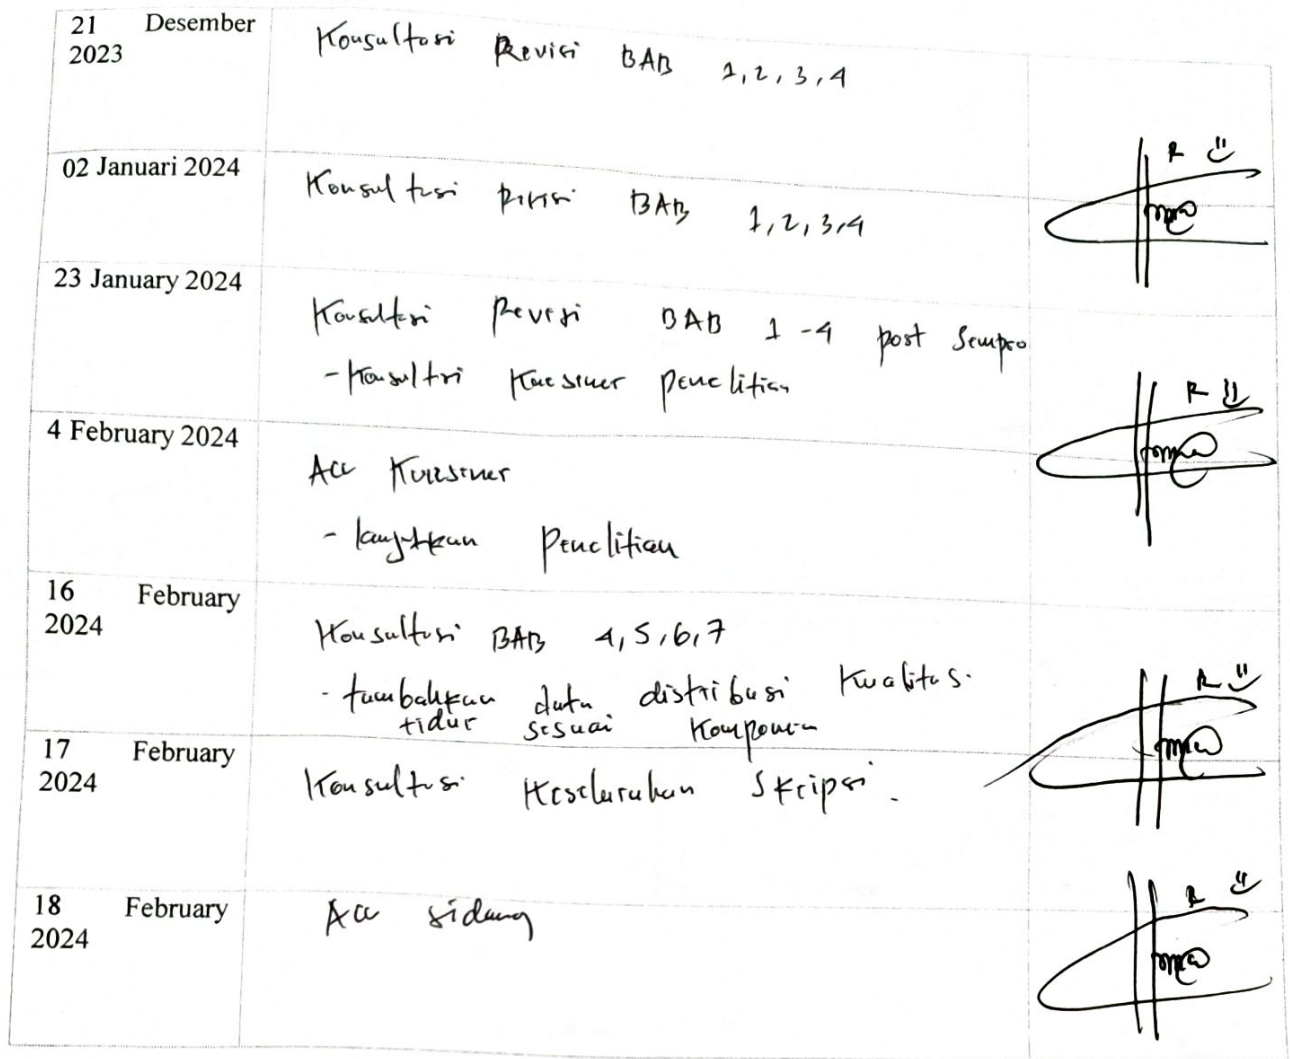 21 Desember
2023
Konsultasi Revisi BAB 1,2,3,4
02 Januari 2024
Konsultasi Revisi BAB 1,2,3,4
23 January 2024
Konsultasi Revisi BAB 1-4 post Sempro
- Konsultasi Kuesiner penelitian
4 February 2024
Acc Kuesiner
- lanjutkan Penelitian
16 February
2024
Konsultasi BAB 4,5,6,7
- tambahkan data distribusi Kualitas
tidur sesuai Komponen
17 February
2024
Konsultasi Keseluruhan Skripsi.
18 February
2024
Acc sidang